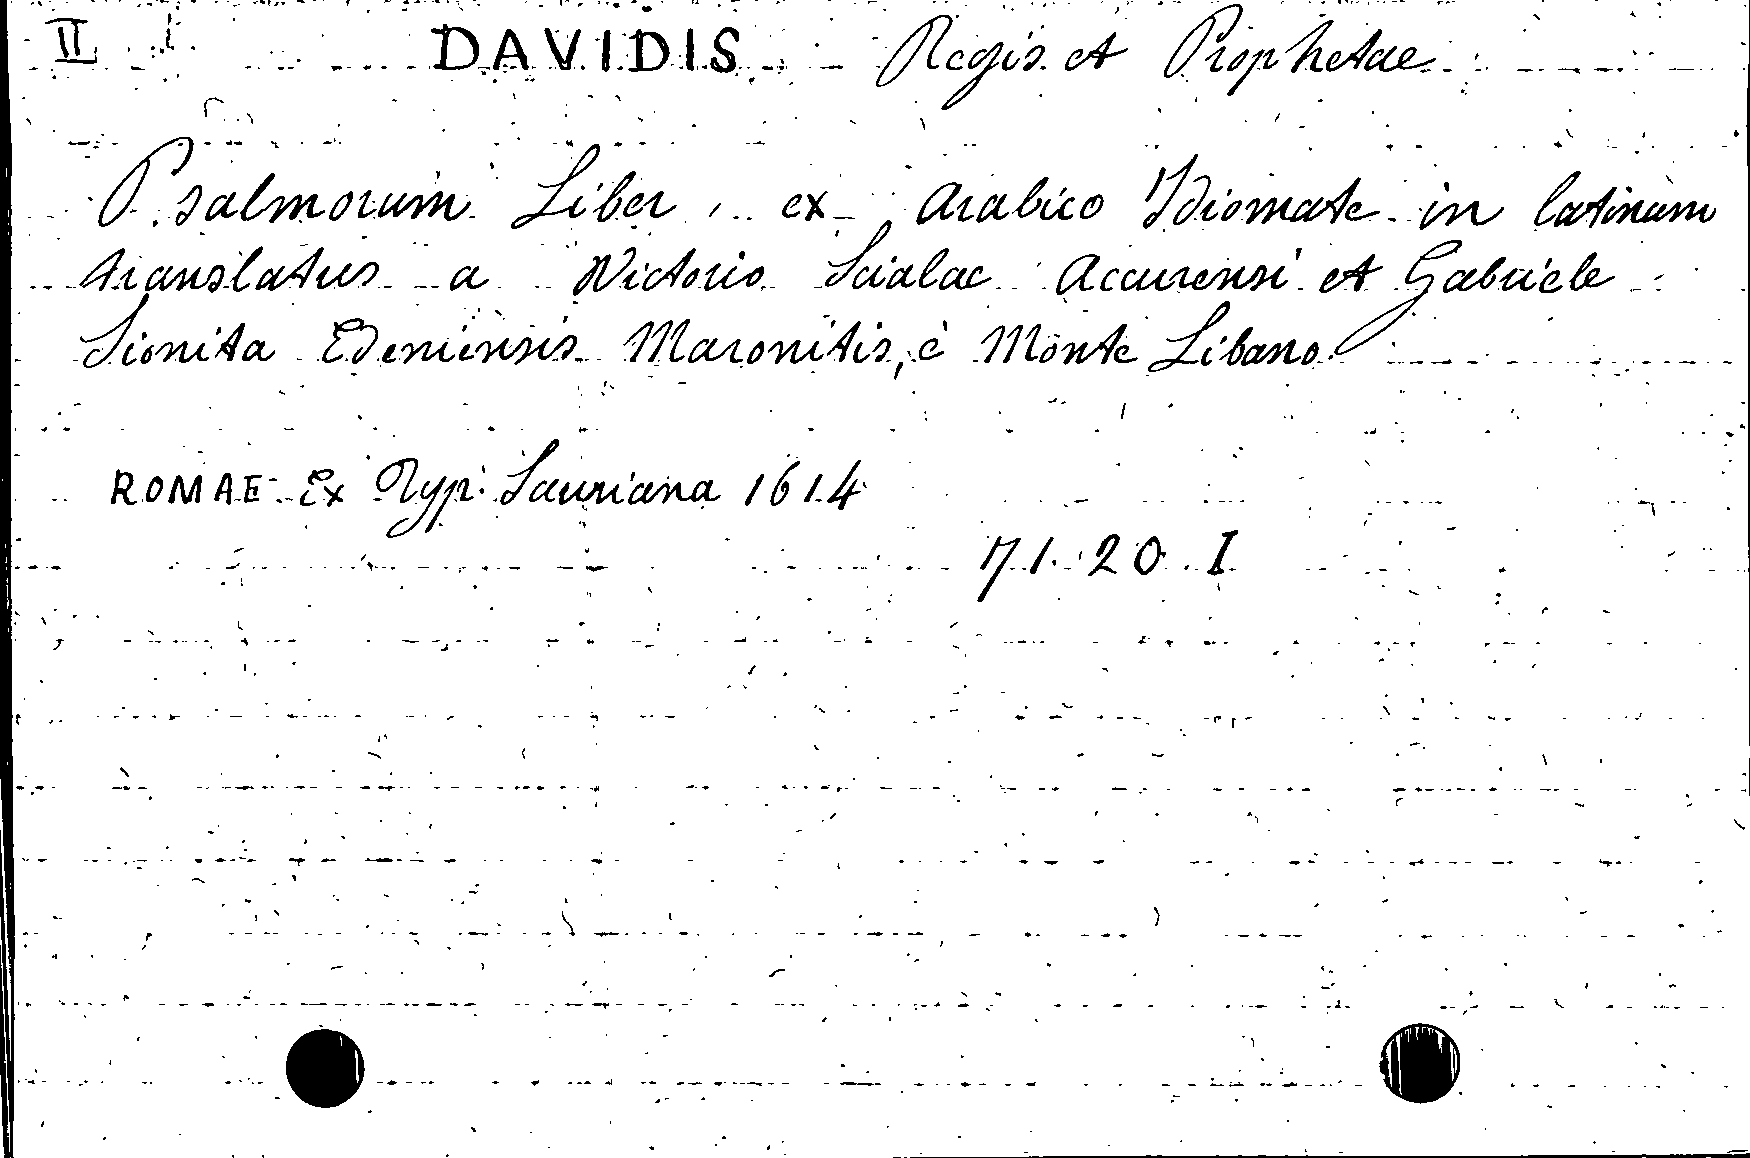 II DAVIDIS Regis et Prophetae
Psalmorum Liber, ex Arabico Idiomate in latinum
translatus a Victorio Scialac Accurensi et Gabriele
Sionita Edeniensis Maronitis, è Monte Libano
ROMAE Ex Typ: Sauriana 1614
71. 20. I